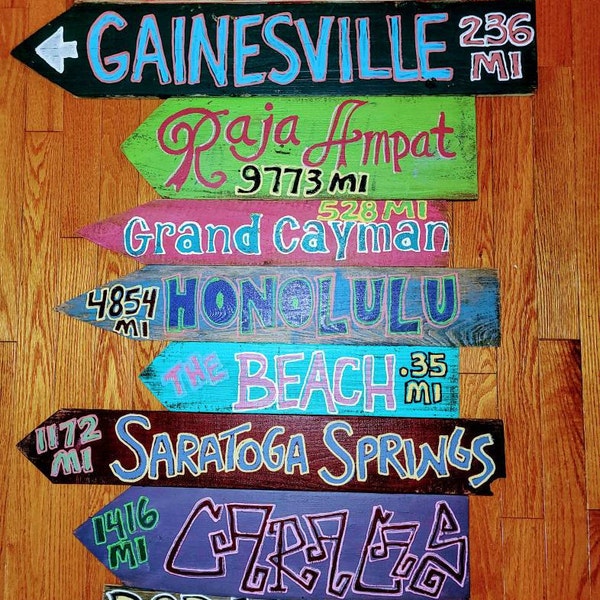 GAINESVILLE 236 MI
Raja Ampat
9773 MI
528 MI
Grand Cayman
4854 MI HONOLULU
THE BEACH .35 MI
1172 MI SARATOGA SPRINGS
1416 MI CARACAS